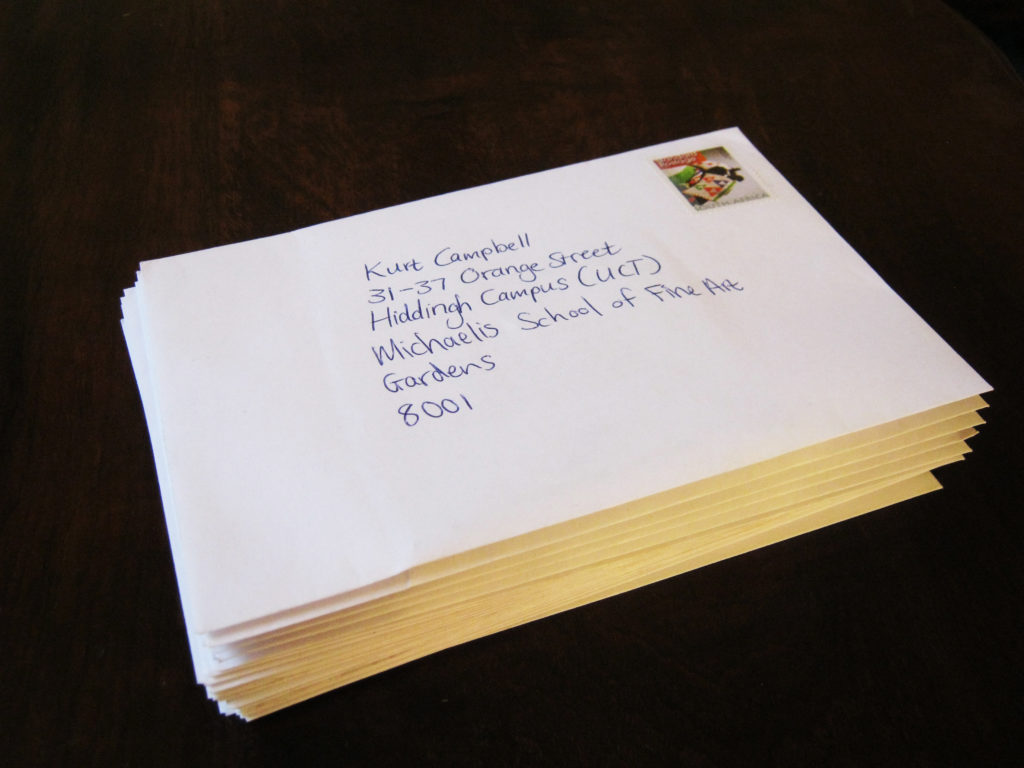 Kurt Campbell
31-37 Orange Street
Hiddingh Campus (UCT)
Michaelis School of Fine Art
Gardens
8001
SOUTH AFRICA